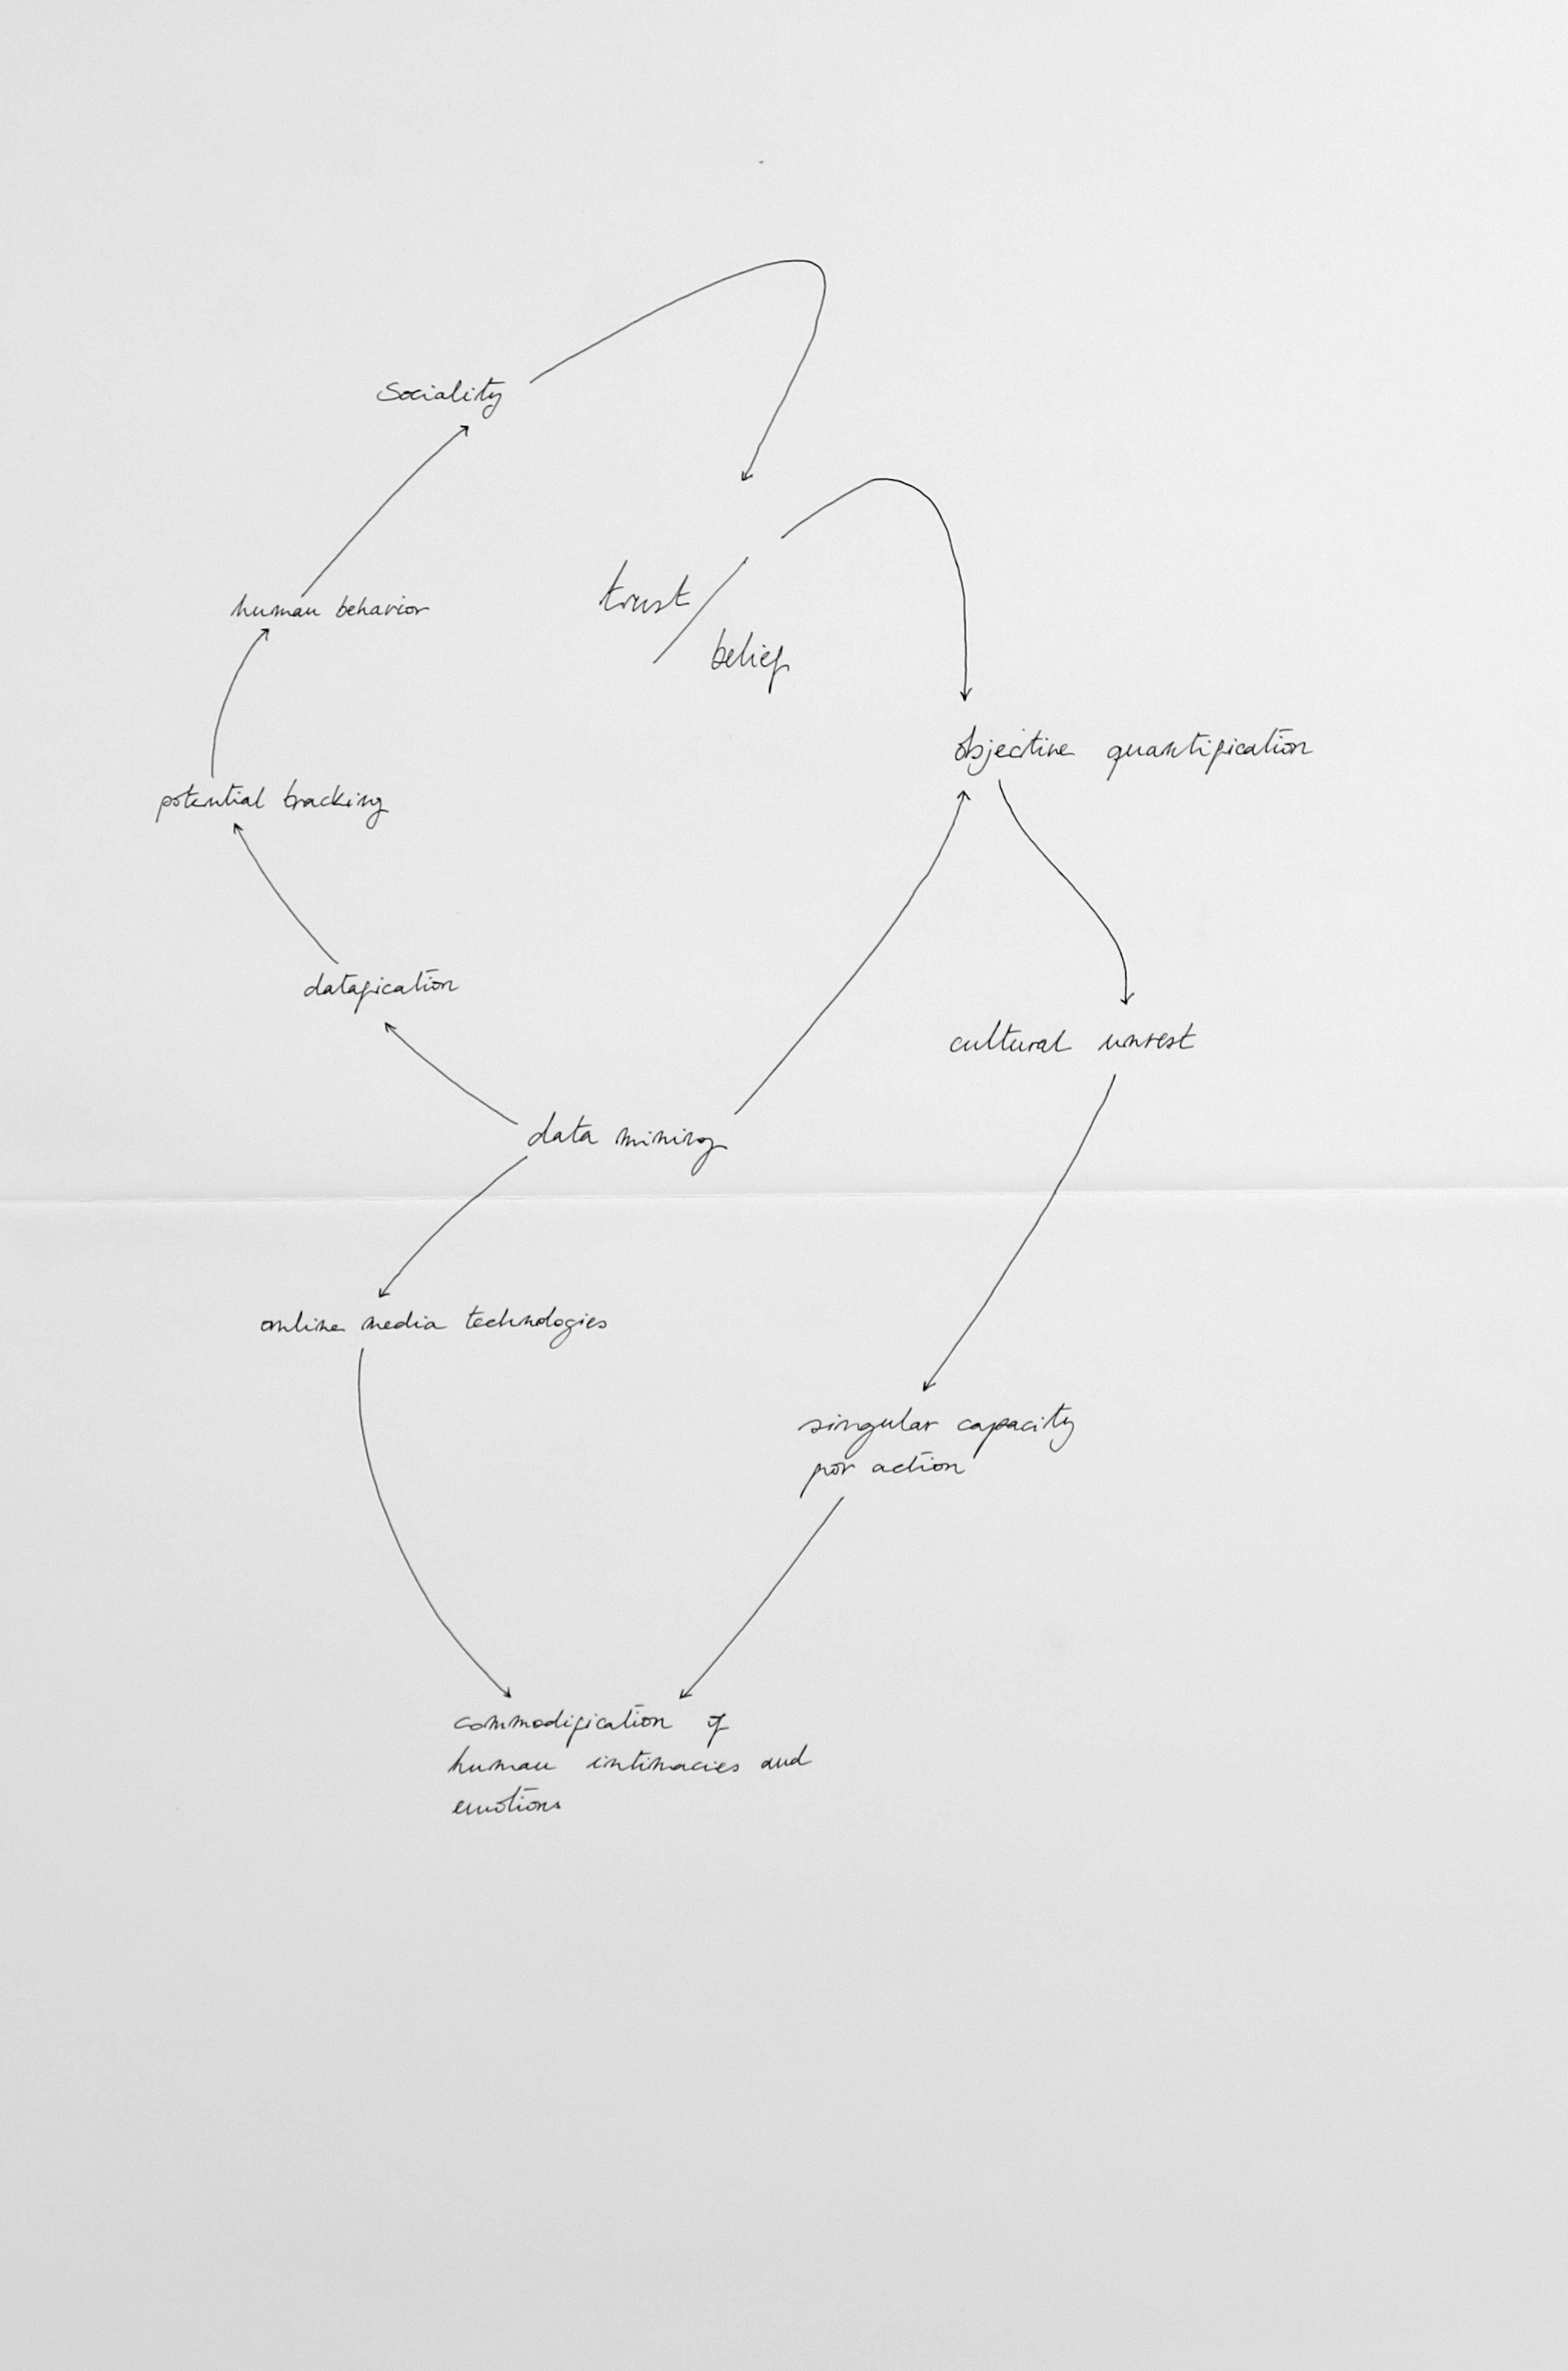 Sociality
human behavior
trust
belief
objective quantification
potential tracking
datafication
cultural unrest
data mining
online media technologies
singular capacity
for action
commodification of
human intimacies and
emotions